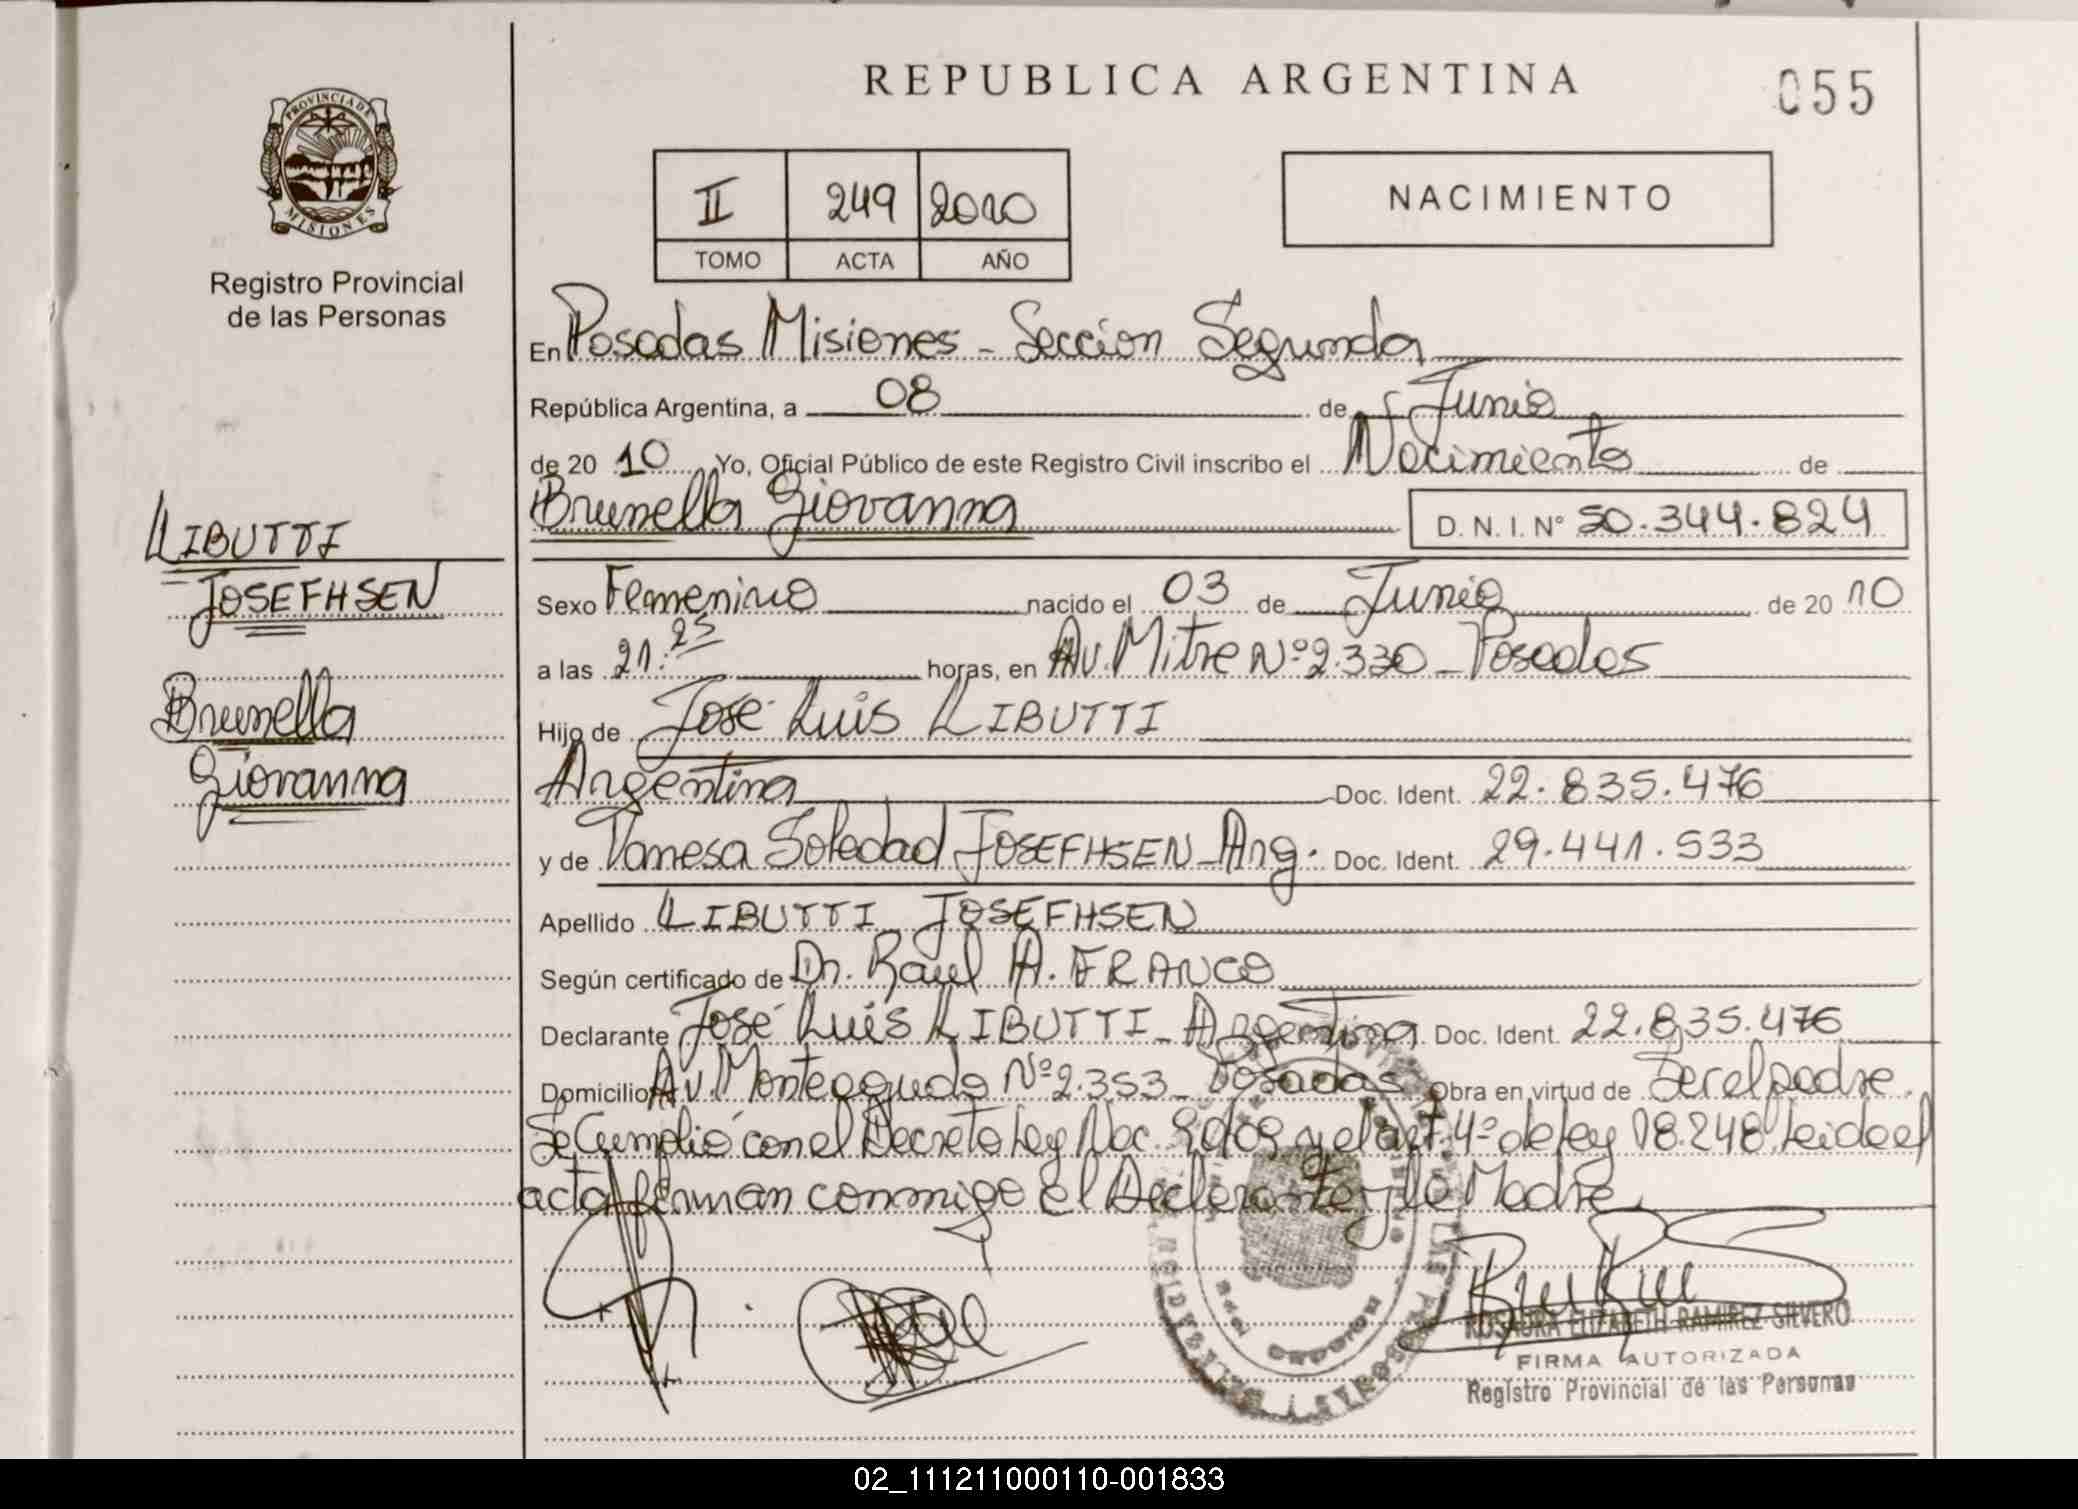 REPUBLICA ARGENTINA
055
PROVINCIA DE
MISIONES
Registro Provincial
de las Personas
II 249 2010
TOMO ACTA AÑO
NACIMIENTO
En Posadas Misiones - Seccion Segunda
República Argentina, a 08 de Junio
de 20 10 Yo, Oficial Público de este Registro Civil inscribo el Nacimiento de
Brunella Giovanna D.N.I. Nº 50.344.824
LIBUTTI
JOSEFHSEN
Brunella
Giovanna
Sexo Femenino nacido el 03 de Junio de 20 10
a las 21:25 horas, en Av. Mitre Nº 2.330 - Posadas
Hijo de José Luis LIBUTTI
Argentina Doc. Ident. 22.835.476
y de Vanesa Soledad JOSEFHSEN - Arg. Doc. Ident. 29.441.533
Apellido LIBUTTI JOSEFHSEN
Según certificado de Dr. Raul A. FRANCO
Declarante José Luis LIBUTTI - Argentina Doc. Ident. 22.835.476
Domicilio Av. Monteagudo Nº 2.353 - Posadas Obra en virtud de Ser el padre.
Se Cumplió con el Decreto Ley Nac. y el art. 4º de Ley 18.248. Leida el
acta firman conmigo el Declarante y la Madre
ROSAURA ELIZABETH RAMIREZ SILVERO
FIRMA AUTORIZADA
Registro Provincial de las Personas
02_111211000110-001833